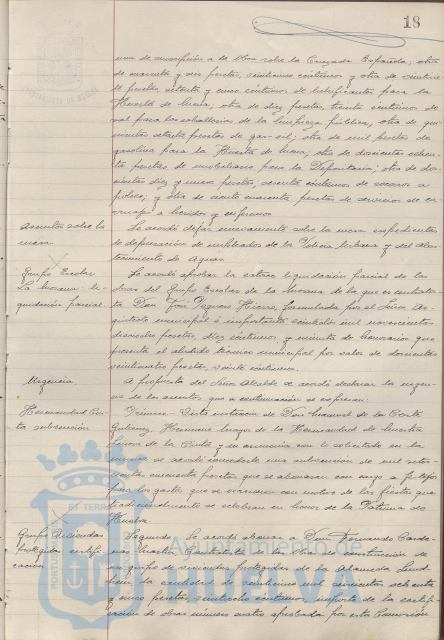 18
una de suscripción a la Obra sobre la Cruzada Española, otra
de cuarenta y seis pesetas, veintiocho céntimos y otra de veintisie
te pesetas setenta y cinco céntimos de lubrificantes para la
Huerta de Mena; otra de diez pesetas, treinta céntimos de
sal para las caballerías de la Limpieza pública, otra de qui
nientas setenta pesetas de gas-oil; otra de mil pesetas de
gasolina para la Huerta de Mena; otra de doscientas ochen
ta pesetas de mobiliario para la Depositaría; otra de do
cientas diez y nueve pesetas, sesenta céntimos de socorros a
pobres; y otra de ciento cuarenta pesetas de servicios de ca
rruajes a heridos y enfermos
Asuntos sobre la
mesa
Se acordó dejar nuevamente sobre la mesa expedientes
de depuración de empleados de la Policía Urbana y del Abas
tecimiento de Aguas.
Grupo Escolar
La Morana. Li-
quidación parcial.
Se acordó aprobar la liquidación parcial de las
obras del Grupo Escolar de la Morana de la que es contratis
ta Don José Hierro, formulada por el Señor Ar
quitecto municipal é importante mil novecientas
pesetas, diez céntimos, y minuta de honorarios que
presenta el aludido técnico municipal por valor de doscientas
veinticuatro pesetas, veinte céntimos.
Urgencia
A propuesta del Señor Alcalde se acordó declarar la urgen
cia de los asuntos que a continuación se expresan:
Hermandad Cin-
ta. subvención
Primero.- Vista instancia de Don Manuel de la Corte
Gutiérrez, Hermano Mayor de la Hermandad de Nuestra
Señora de la Cinta y en armonía con lo solicitado en la
misma se acordó concederle una subvención de mil sete
cientas cincuenta pesetas que se abonarán con cargo a
para los gastos que se originen con motivo de las fiestas que
tradicionalmente se celebran en honor de la Patrona de
Huelva
Grupo viviendas
protegidas certifi-
cación
Segundo.- Se acordó abonar a Don Fernando Conde
Contratista de las obras de construcción de
un grupo de viviendas protegidas de la Alameda Sund
heim, la cantidad de mil quinientas ochenta
y cinco pesetas, veintiocho céntimos, importe de la certifi-
cación de obras número cuatro aprobada por esta Comisión
Ayuntamiento de
Huelva